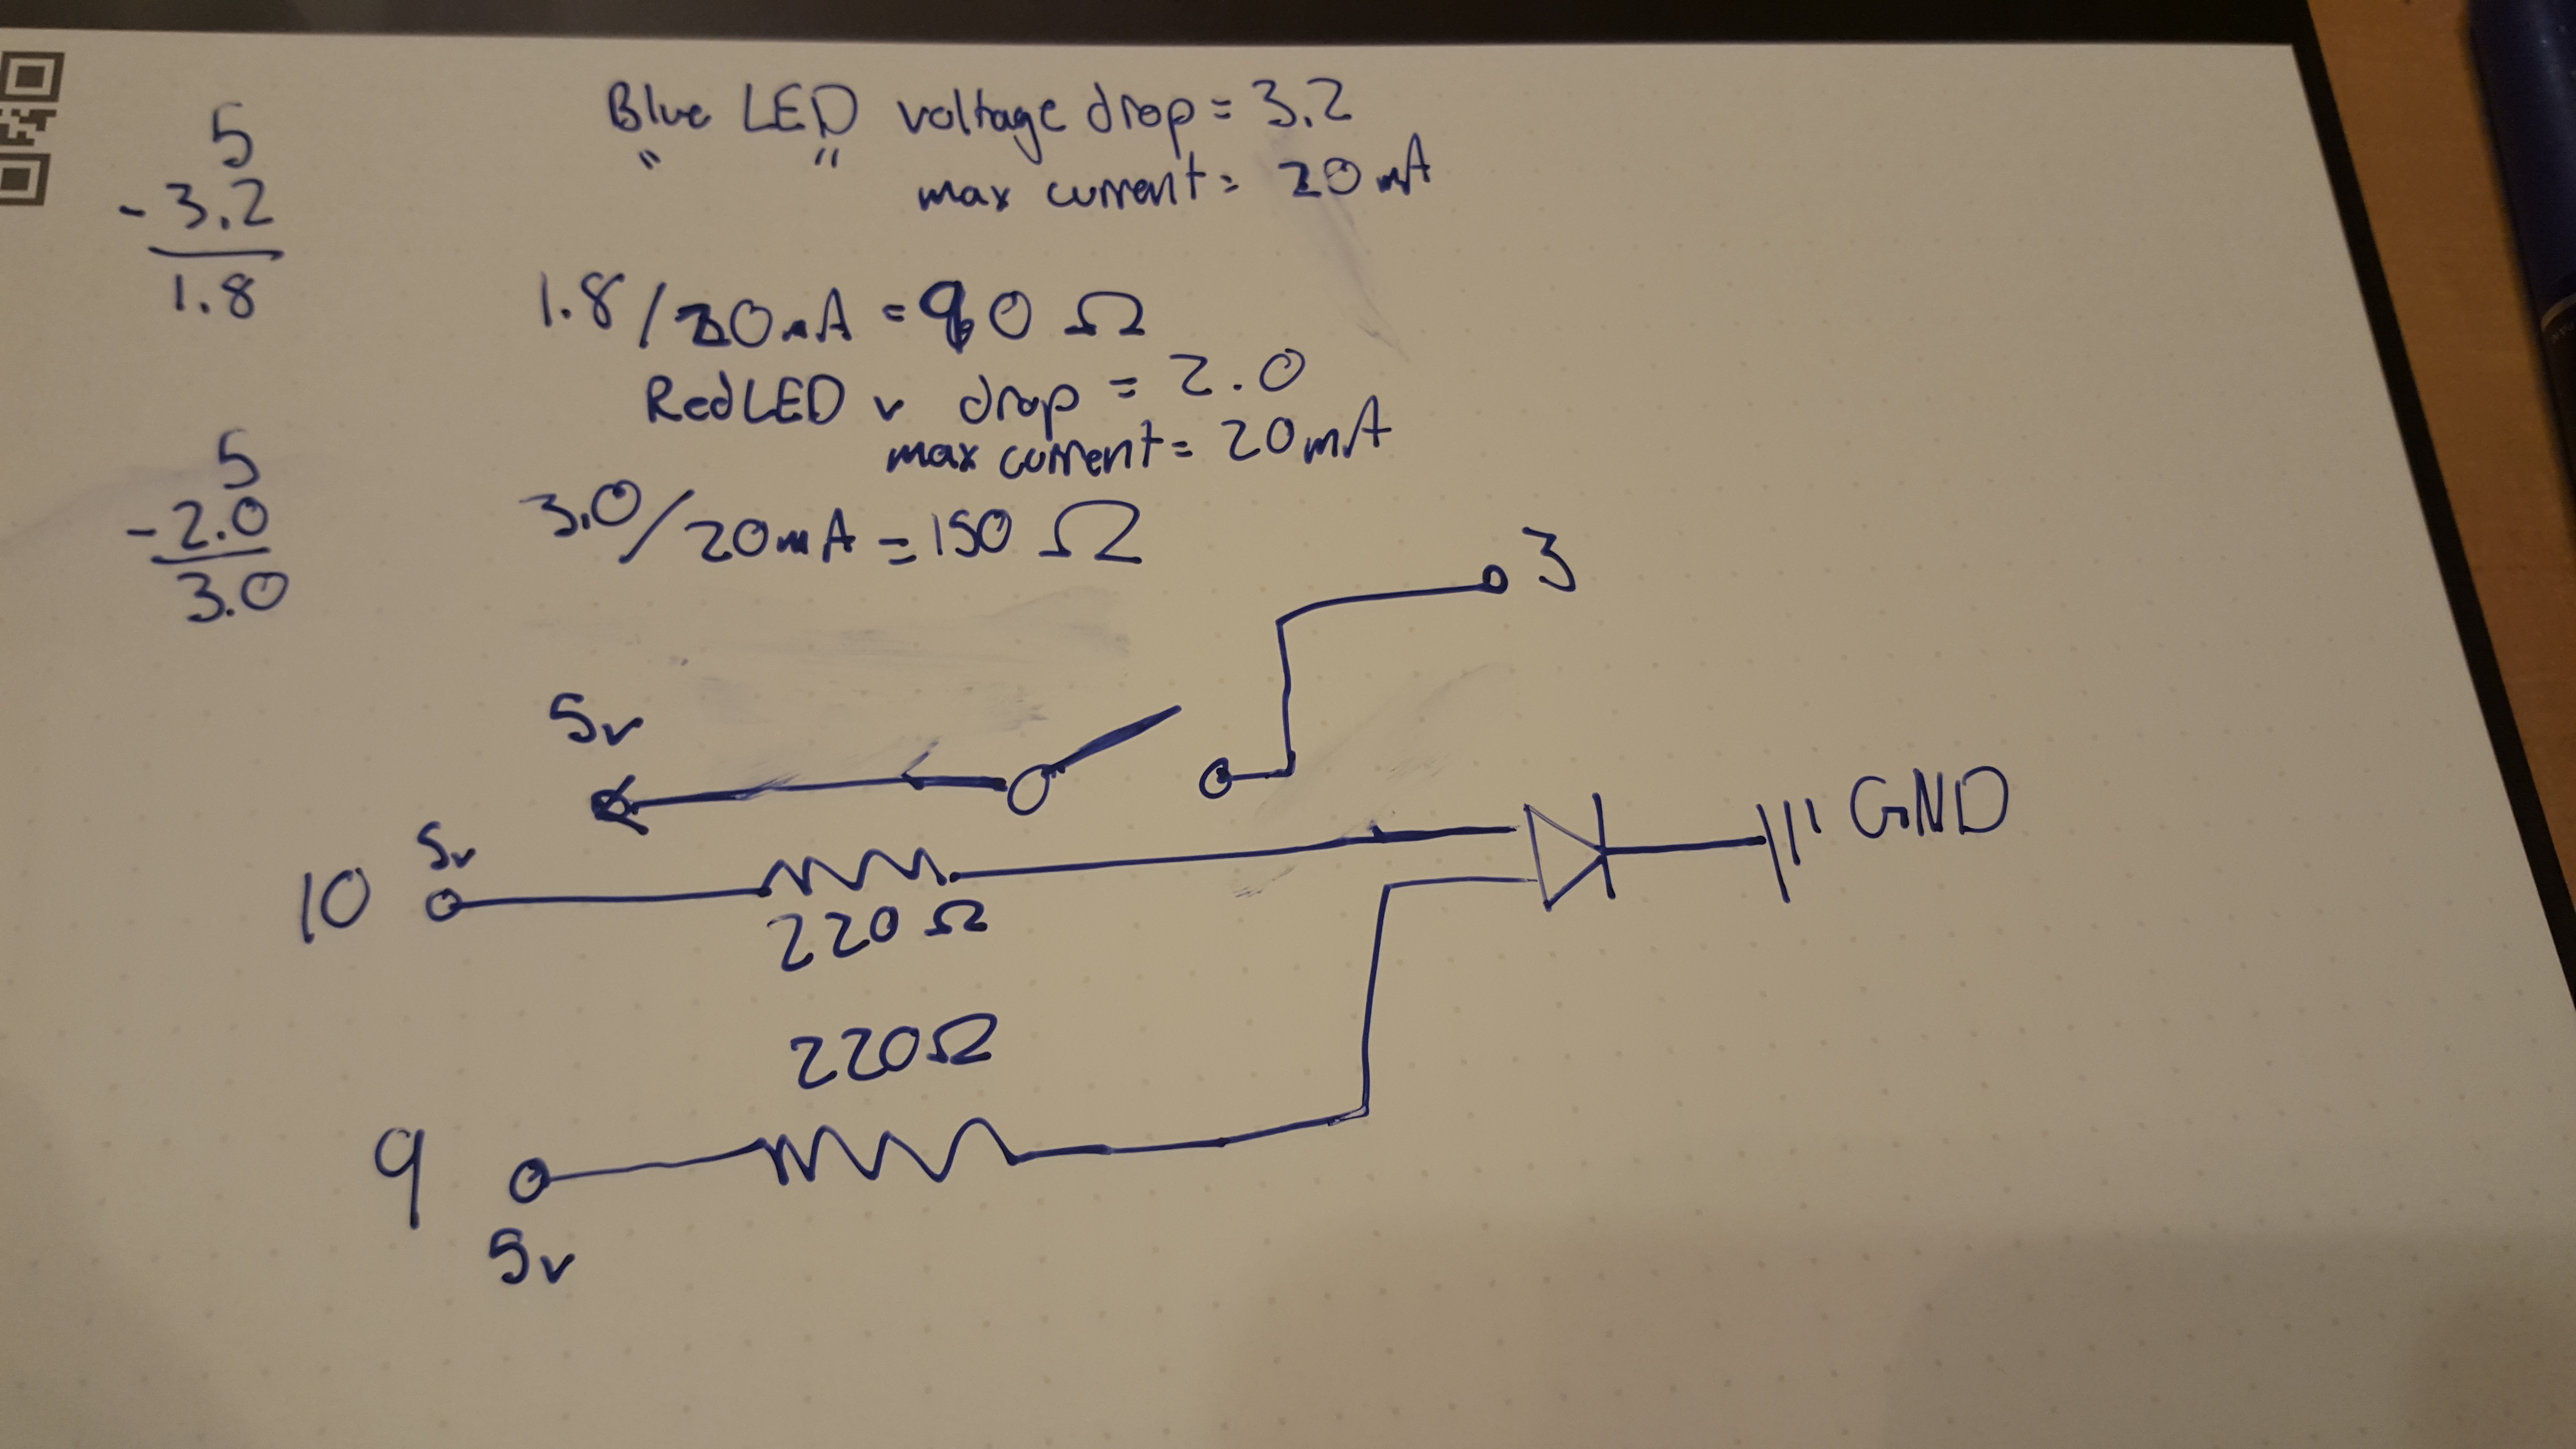 5
- 3.2
1.8
Blue LED voltage drop = 3.2
" " max current = 20 mA
1.8 / 20mA = 90 Ω
Red LED v drop = 2.0
max current = 20mA
5
- 2.0
3.0
3.0 / 20mA = 150 Ω
3
5v
10 5v
220 Ω
GND
220Ω
9
5v